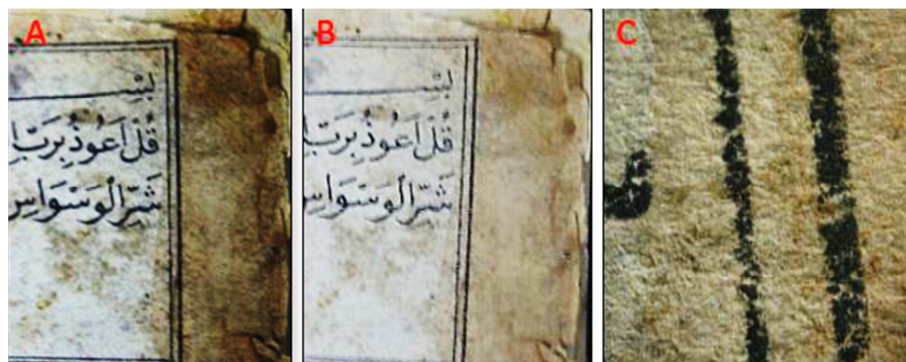 A
بِسْمِ
قُلْ اَعُوذُ بِرَبِّ
شَرِّ الْوَسْوَاسِ
B
قُلْ اَعُوذُ بِرَبِّ
شَرِّ الْوَسْوَاسِ
C